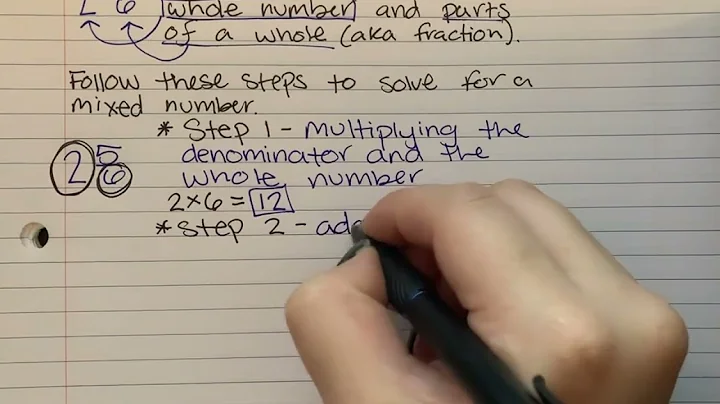 2 6 whole number and parts
of a whole (aka fraction).
Follow these steps to solve for a
mixed number.
* Step 1 - multiplying the
2 5/6 denominator and the
whole number
2×6=12
*Step 2 - add